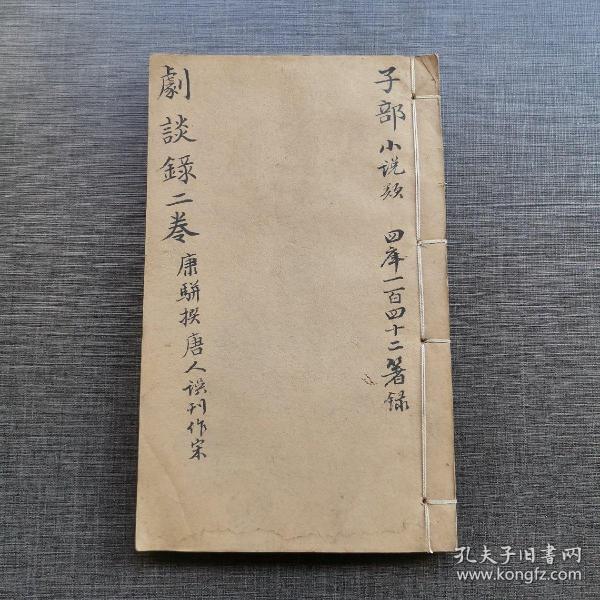 子部小说類 四庫一百四十二箸録
劇談錄二卷 康駢撰 唐人誤刊作宋
孔夫子旧書网
www.kongfz.com